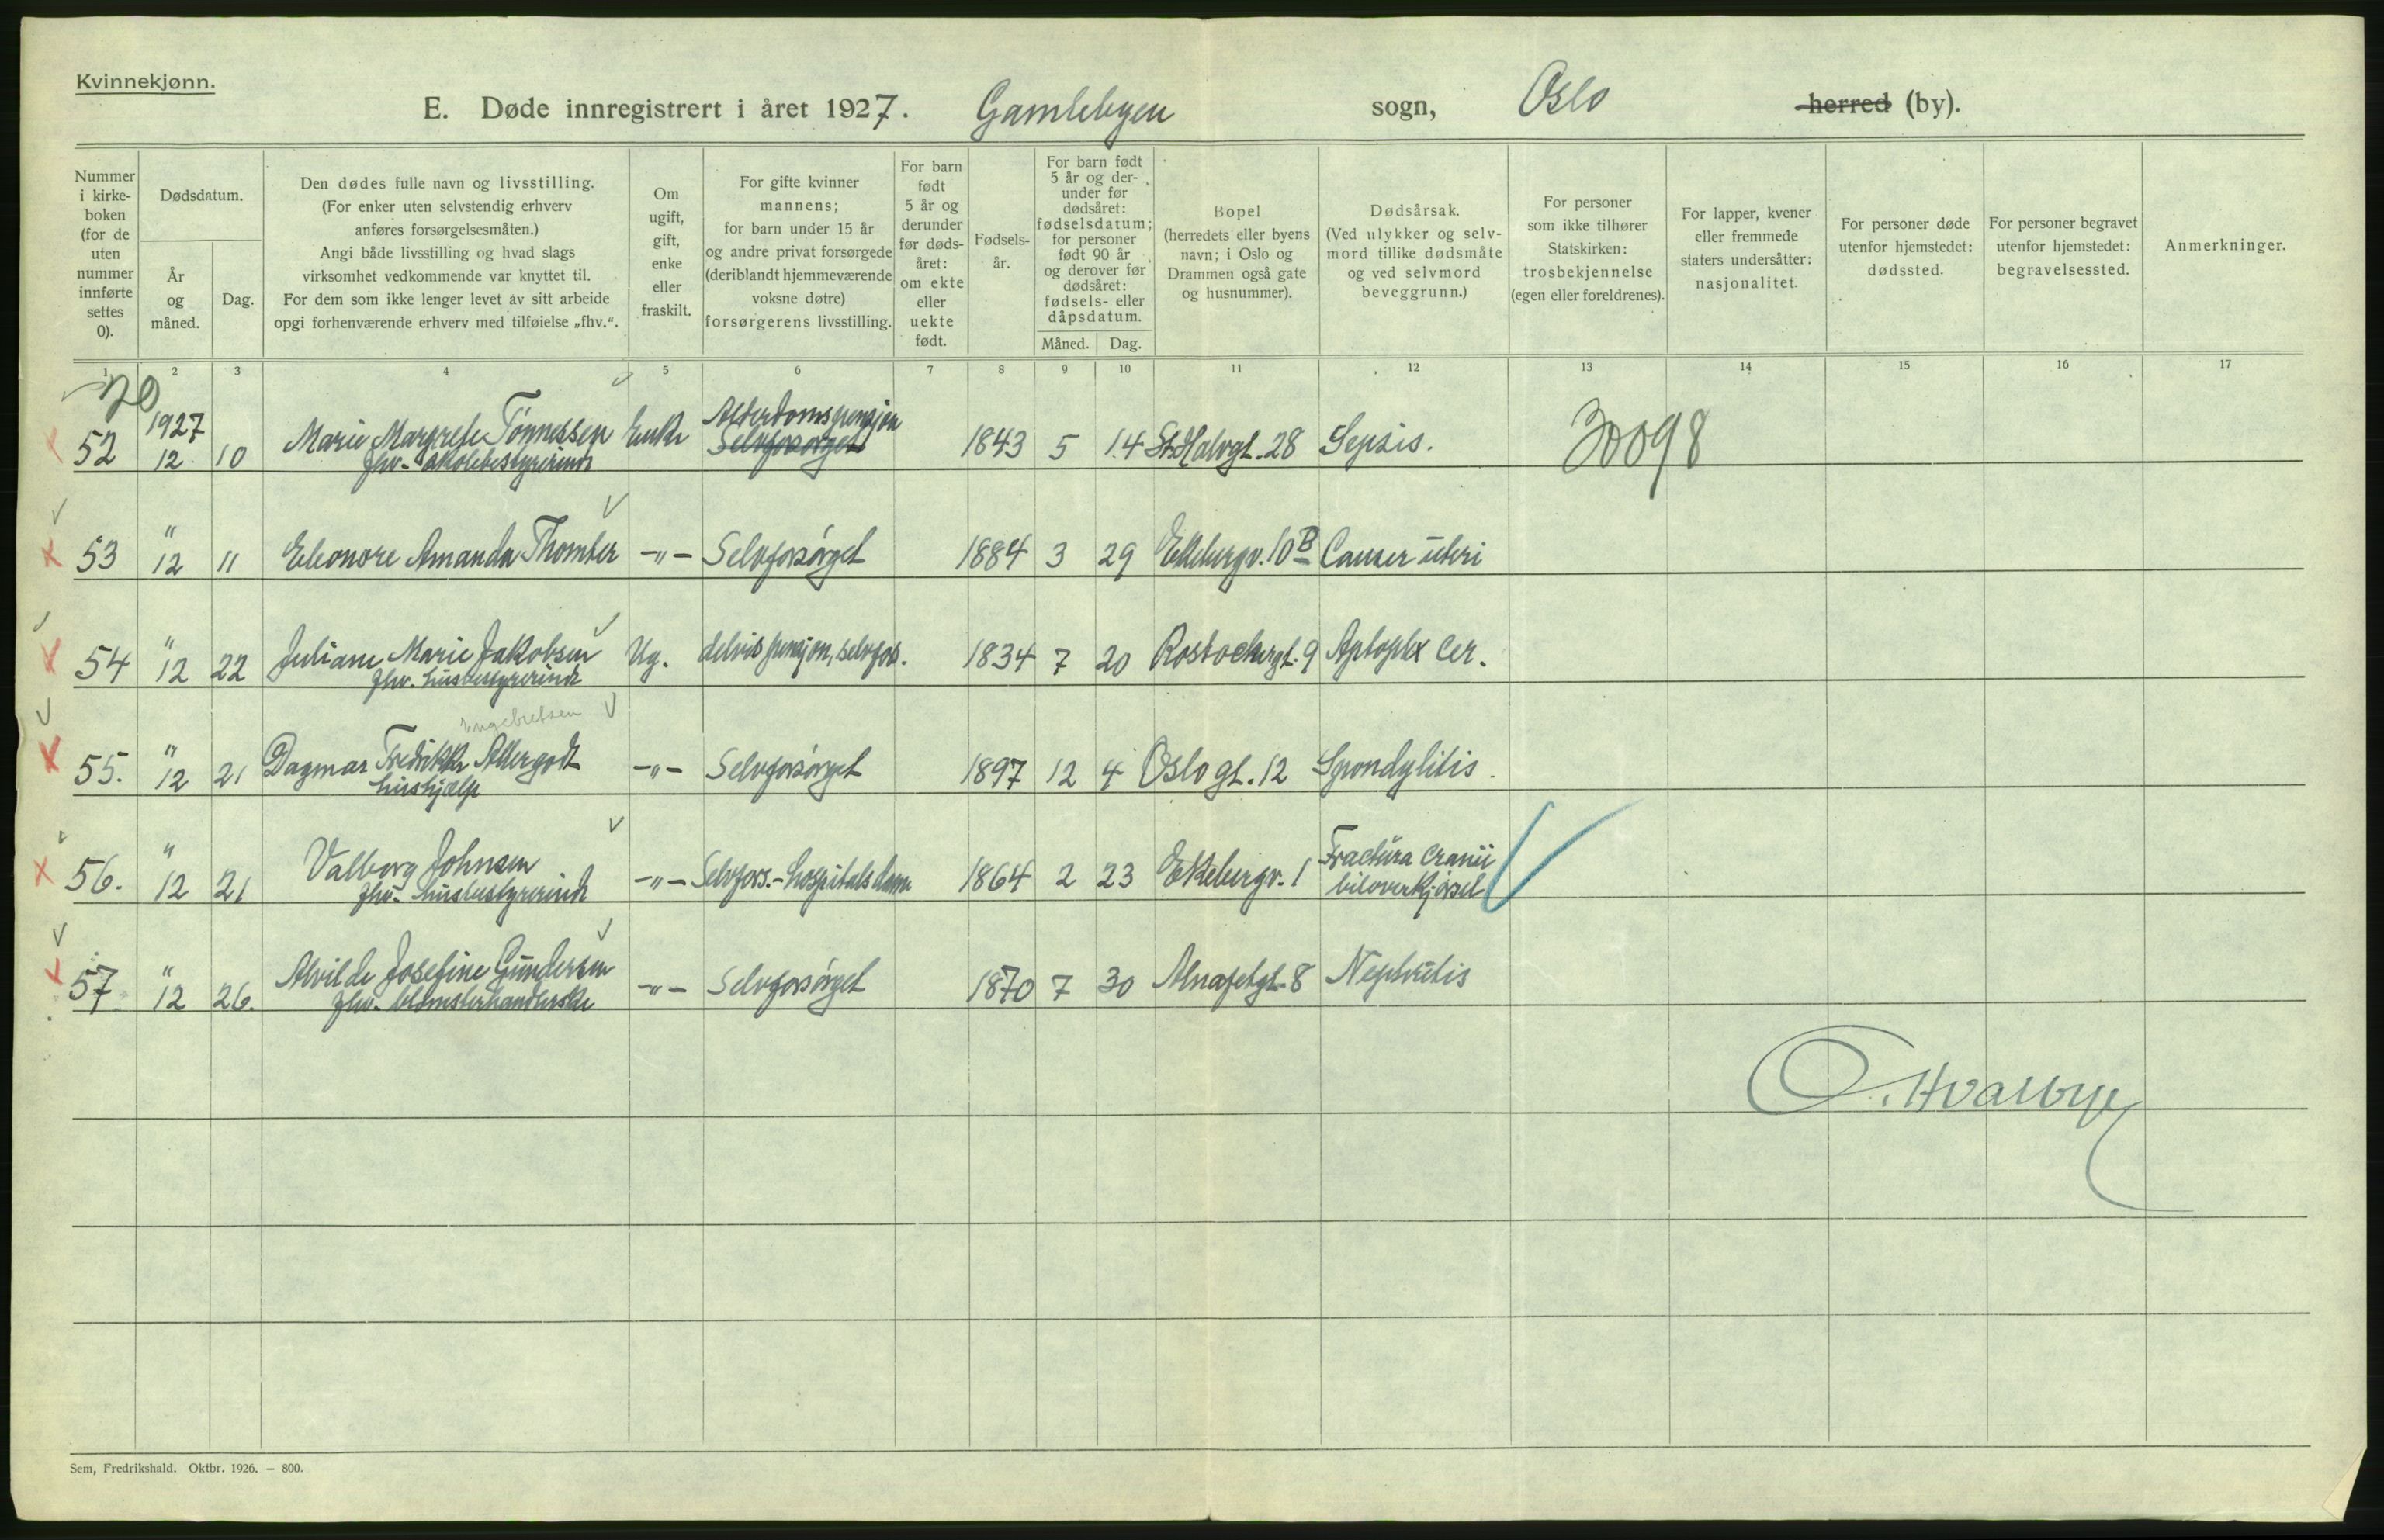 Kvinnekjønn.
E. Døde innregistrert i året 1927. Gamlebyen sogn, Oslo herred (by).
Nummer i kirke-boken (for de uten nummer innførte settes 0).
Dødsdatum.
År og måned.
Dag.
Den dødes fulle navn og livsstilling.
(For enker uten selvstendig erhverv
anføres forsørgelsesmåten.)
Angi både livsstilling og hvad slags
virksomhet vedkommende var knyttet til.
For dem som ikke lenger levet av sitt arbeide
opgi forhenværende erhverv med tilføielse „fhv.“.
Om ugift, gift, enke eller fraskilt.
For gifte kvinner
mannens;
for barn under 15 år
og andre privat forsørgede
(deriblandt hjemmeværende
voksne døtre)
forsørgerens livsstilling.
For barn født 5 år og derunder før døds-året: om ekte eller uekte født.
Fødsels-år.
For barn født 5 år og der-under før dødsåret: fødselsdatum; for personer født 90 år og derover før dødsåret: fødsels- eller dåpsdatum.
Måned. Dag.
Bopel
(herredets eller byens
navn; i Oslo og
Drammen også gate
og husnummer).
Dødsårsak.
(Ved ulykker og selv-
mord tillike dødsmåte
og ved selvmord
beveggrunn.)
For personer
som ikke tilhører
Statskirken:
trosbekjennelse
(egen eller foreldrenes).
For lapper, kvener
eller fremmede
staters undersåtter:
nasjonalitet.
For personer døde
utenfor hjemstedet:
dødssted.
For personer begravet
utenfor hjemstedet:
begravelsessted.
Anmerkninger.
1 2 3 4 5 6 7 8 9 10 11 12 13 14 15 16 17
20
52 1927 12 10 Marie Margrete Tønnessen Enke Alderdomspensjon 1843 5 14 St. Halvgt. 28 Sepsis. 30098
fhv. skolebestyrerinde Selvforsørget
53 " 12 11 Eleonore Amanda Thomter -"- Selvforsørget 1884 3 29 Ekebergv. 10B Cancer uteri
54 " 12 22 Juliane Marie Jakobsen Ug. delvis pensjon, selvfors. 1834 7 20 Rostockergt. 9 Apoplex cer.
fhv. husbestyrerinde
Engebretsen
55. " 12 21 Dagmar Fredrikke Allergodt -"- Selvforsørget 1897 12 4 Oslo gt. 12 Spondylitis.
hushjælp
56. " 12 21 Valborg Johnsen -"- Selvfors.-hospitalslem 1864 2 23 Ekebergv. 1 Fractura cranii
fhv. husbestyrerinde biloverkjørsel
57 " 12 26. Alvilde Josefine Gundersen -"- Selvforsørget 1870 7 30 Alnafetgt. 8 Nephritis
fhv. blomsterhandlerske
O. Hvalbye
Sem, Fredrikshald. Oktbr. 1926. — 800.